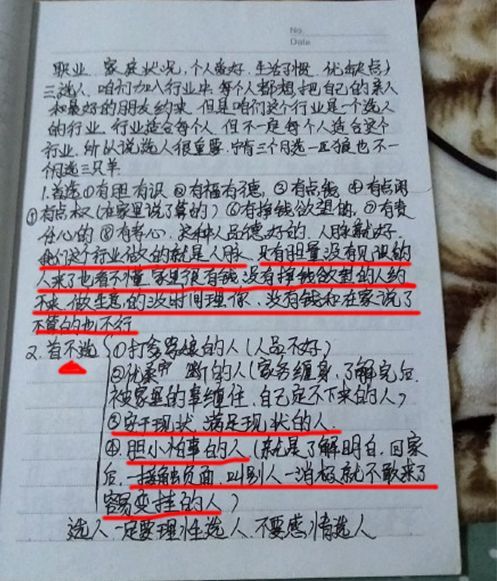 No.
Date
职业、家庭状况,个人爱好、生活习惯、优缺点)
三.选人,咱们加入行业后,每个人都想把自己的亲人
和最好的朋友约来,但是咱们这个行业是一个选人
的行业,行业适合每个人,但不一定每个人适合这个
行业,所以说选人很重要,宁肯三个月选一匹狼也不一
个月选三只羊.
1.首选①有胆有识②有福有德,③有点钱④有点闲
⑤有点权(在家里说了算的)⑥有挣钱欲望的,⑦有责
任心的⑧有孝心.这种人品德好的,人脉就好.
我们这个行业做的就是人脉,只有胆量没有见识的
人来了也看不懂,家里很有钱没有挣钱欲望的人约
不来,做生意的没时间理你,没有钱和在家说了
不算的也不行
2.首不选 ①打爹骂娘的人(人品不好)
②优柔 断的人(家务缠身,了解完后
被家里的事缠住,自己定不下来的人)
③安于现状,满足现状的人
④.胆小怕事的人(就是了解明白,回家
后,一接触负面,叫别人一消极就不敢来了
容易变挂的人)
选人一定要理性选人,不要感情选人